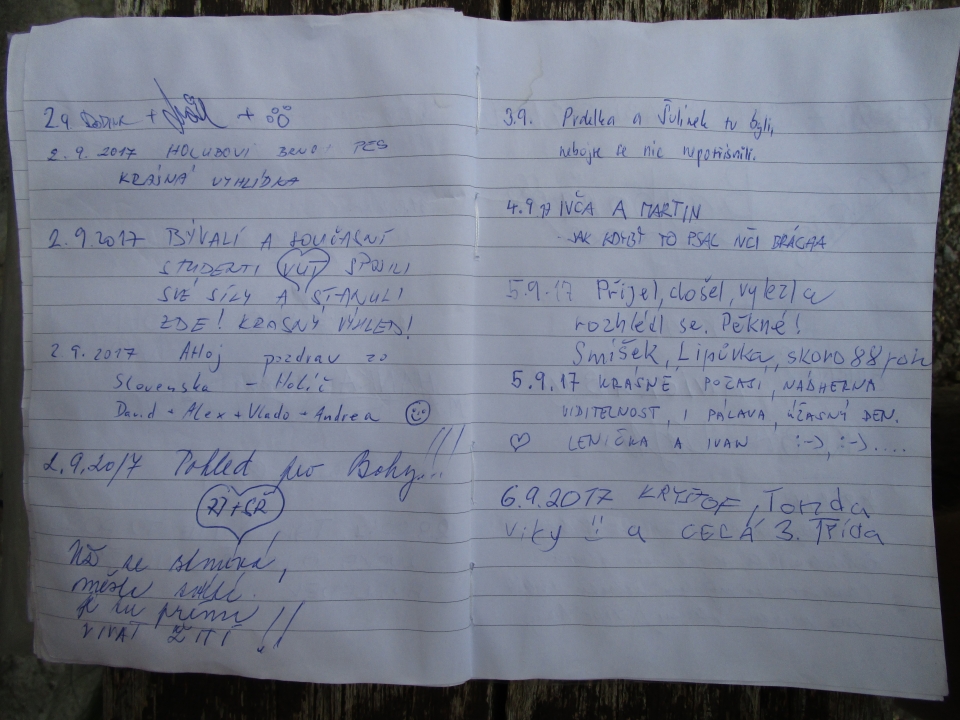 2.9. + +
2.9.2017 HOLUBOVI BENO! PES
KRÁSNÁ VYHLÍDKA
2.9.2017 BÝVALÍ A SOUČASNÍ
STUDENTI VUT SPOJILI
SVÉ SÍLY A STANULI
ZDE! KRÁSNÝ VÝHLED!
2.9.2017 Ahoj pozdrav zo
Slovenska - Holíč
David + Alex + Vlado + Andrea
2.9.2017 Pohled pro Bohy!!!
RJ + SR
Už se stmívá,
měsíc
je tu príma
VIVAT ŽITÍ!!
3.9. Prdelka a Šulínek tu byli,
nebojte se nic nepomisnili.
4.9.17 IVČA A MARTIN
- JAK KDYBY TO PSAL NČÍ BRÁCHA
5.9.17 Přijel, došel, vylezl a
rozhlédl se. Pěkné!
Smíšek, Lipůvka, skoro 88 roků
5.9.17 KRÁSNÉ POČASÍ, NÁDHERNÁ
VIDITELNOST, I PÁLAVA, ÚŽASNÝ DEN.
♡ LENIČKA A IVAN :-), :-)....
6.9.2017 KRYŠTOF, Tonda
Viky !! a CELÁ 3. Třída